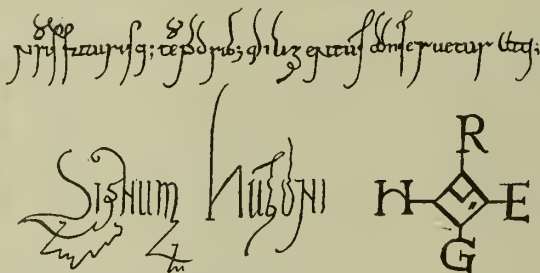 nris futurisq; tēporib; diligentius conseruetur atq;
Signum Hugoni
R
H E
G